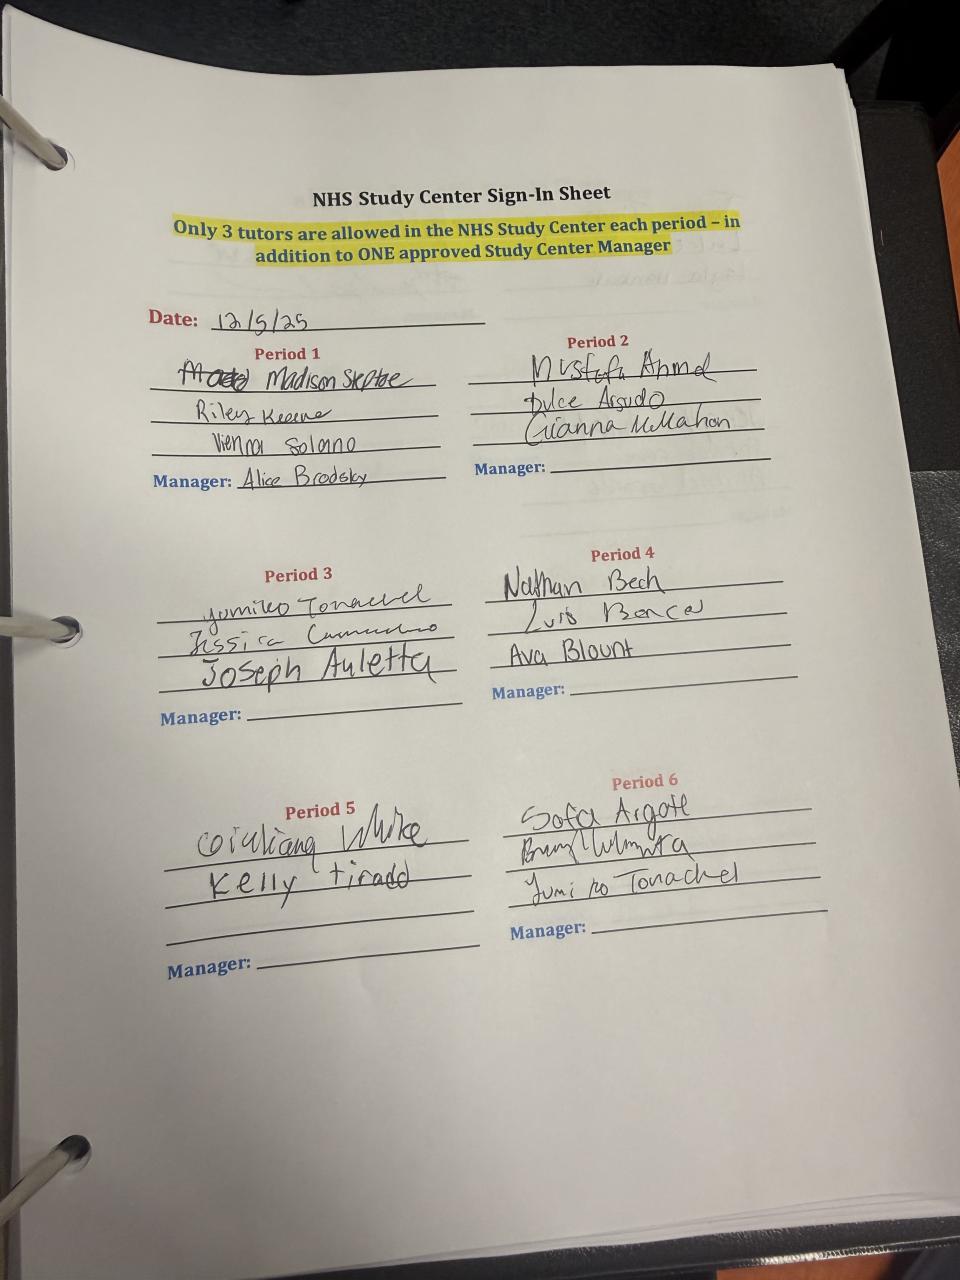 NHS Study Center Sign-In Sheet
Only 3 tutors are allowed in the NHS Study Center each period – in
addition to ONE approved Study Center Manager
Date: 12/5/25
Period 1
Madison Steptoe
Riley Keene
Vienna Solano
Manager: Alice Brodsky
Period 2
Mustafa Ahmed
Dulce Argudo
Gianna McMahon
Manager:
Period 3
Yumiko Tonachel
Jessica
Joseph Auletta
Manager:
Period 4
Nathan Bech
Luis
Ava Blount
Manager:
Period 5
Giuliana White
Kelly Tirado
Manager:
Period 6
Sofia Argote
Yumiko Tonachel
Manager: